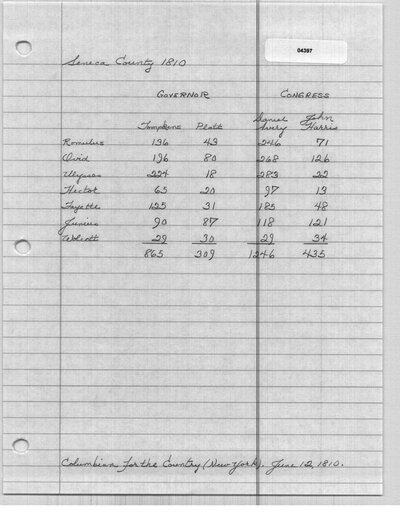 04397
Seneca County 1810
GOVERNOR CONGRESS
Tompkins Platt Daniel Avery John Harris
Romulus 136 43 246 71
Ovid 196 80 268 126
Ulysses 224 18 283 22
Hector 65 20 97 13
Fayette 125 31 185 48
Junius 90 87 118 121
Wolcott 29 30 29 34
865 309 1246 435
Columbian for the Country (New York). June 12, 1810.